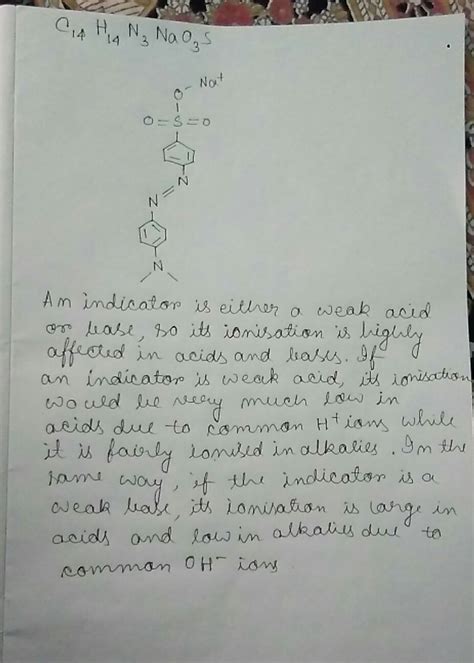 C14 H14 N3 NaO3S
O- Na+
O=S=O
N
N
N
An indicator is either a weak acid
or base, so its ionisation is highly
affected in acids and bases. If
an indicator is weak acid, its ionisation
would be very much low in
acids due to common H+ ions while
it is fairly ionised in alkalies. In the
same way, if the indicator is a
weak base, its ionisation is large in
acids and low in alkalies due to
common OH- ions